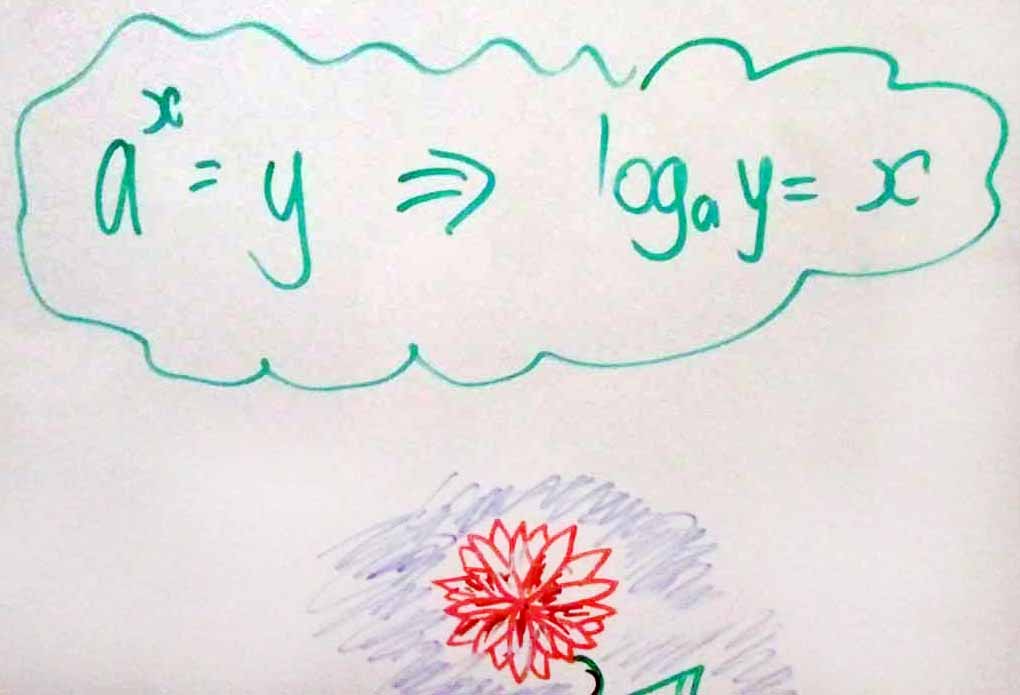 aˣ = y ⇒ logₐ y = x